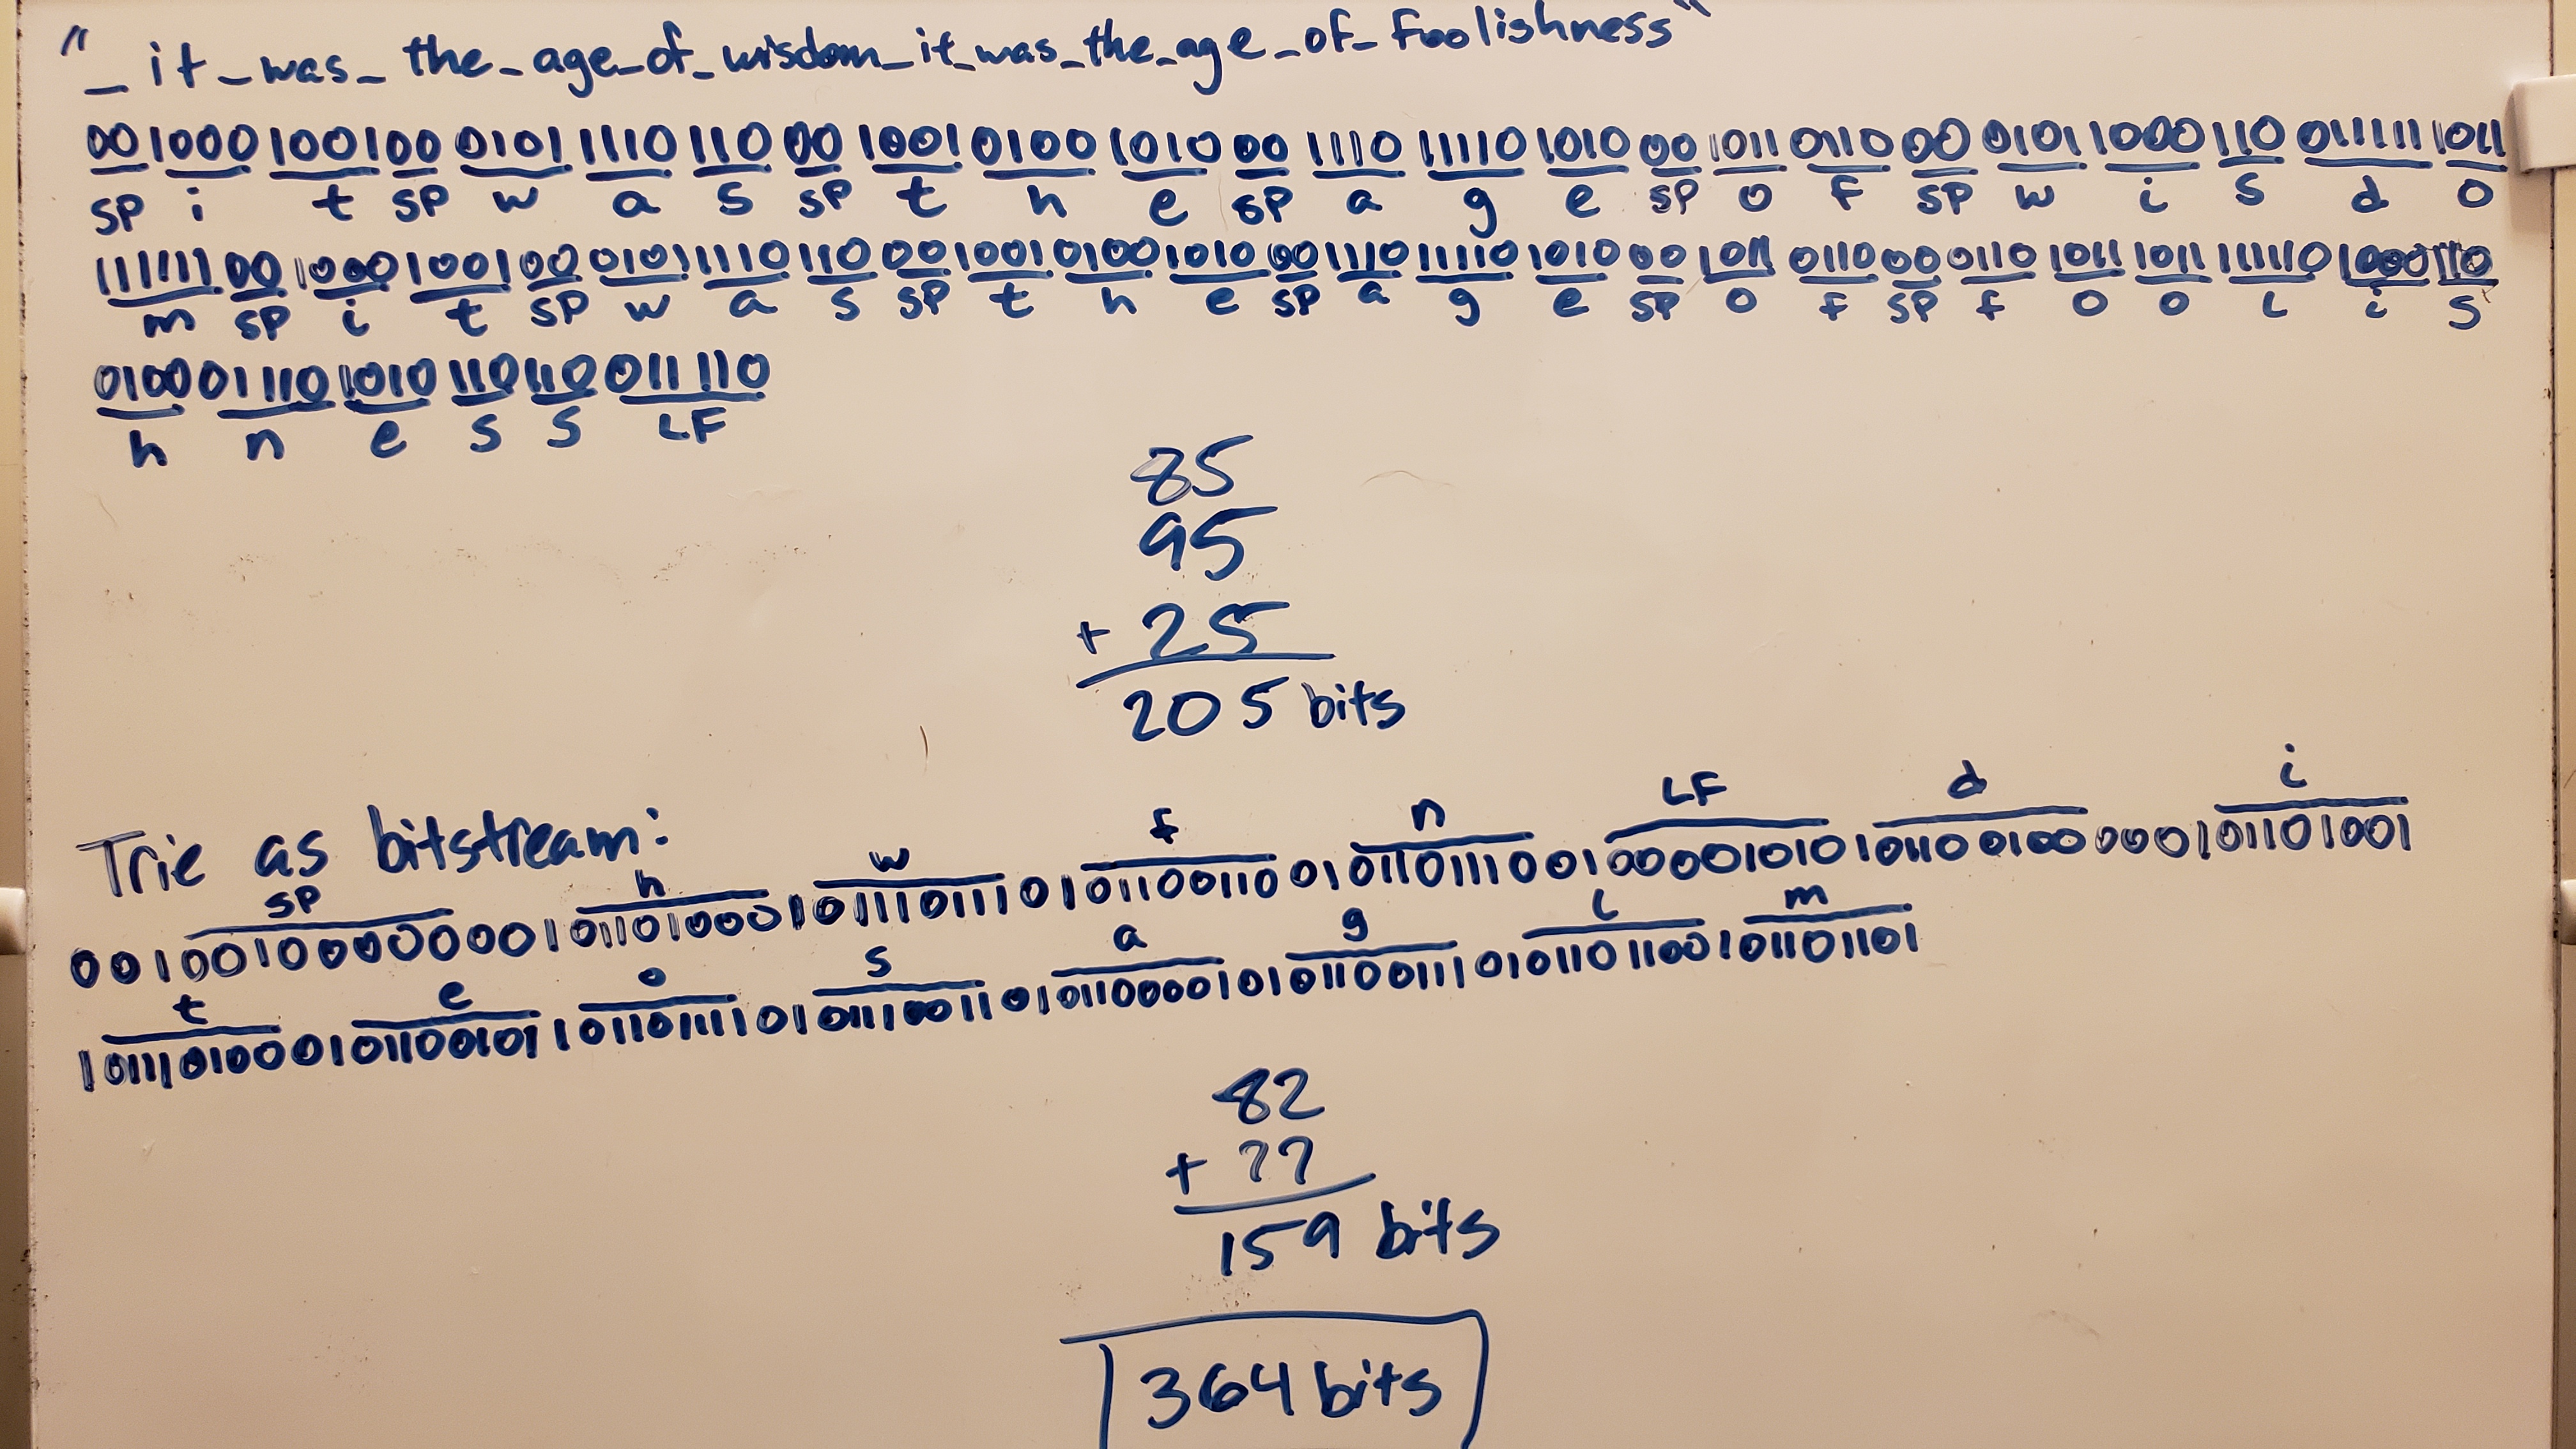 "_it_was_the_age_of_wisdom_it_was_the_age_of_foolishness"
00 1000 1001 00 0101 1110 110 00 1001 0100 1010 00 1110 11110 1010 00 1011 0110 00 0101 1000 110 011111 1011
SP i t SP w a s SP t h e SP a g e SP o f SP w i s d o
111111 00 1000 1001 00 0101 1110 110 00 1001 0100 1010 00 1110 11110 1010 00 1011 0110 00 0110 1011 1011 111110 1000 110
m SP i t SP w a s SP t h e SP a g e SP o f SP f o o l i s
0100 01110 1010 110 110 011110
h n e s s LF
85
95
+ 25
205 bits
Trie as bitstream:
SP h w f n LF d i
0010010000000101101000101110111010110011001011011100100001010101100100000101101001
t e o s a g l m
10111010001011001011011011110101110011010110000101011001110101101100101101101
82
+ 77
159 bits
364 bits